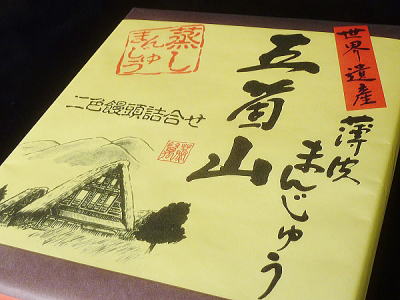 世界遺産
五箇山
薄皮
まんじゅう
蒸し
まんじゅう
二色饅頭詰合せ